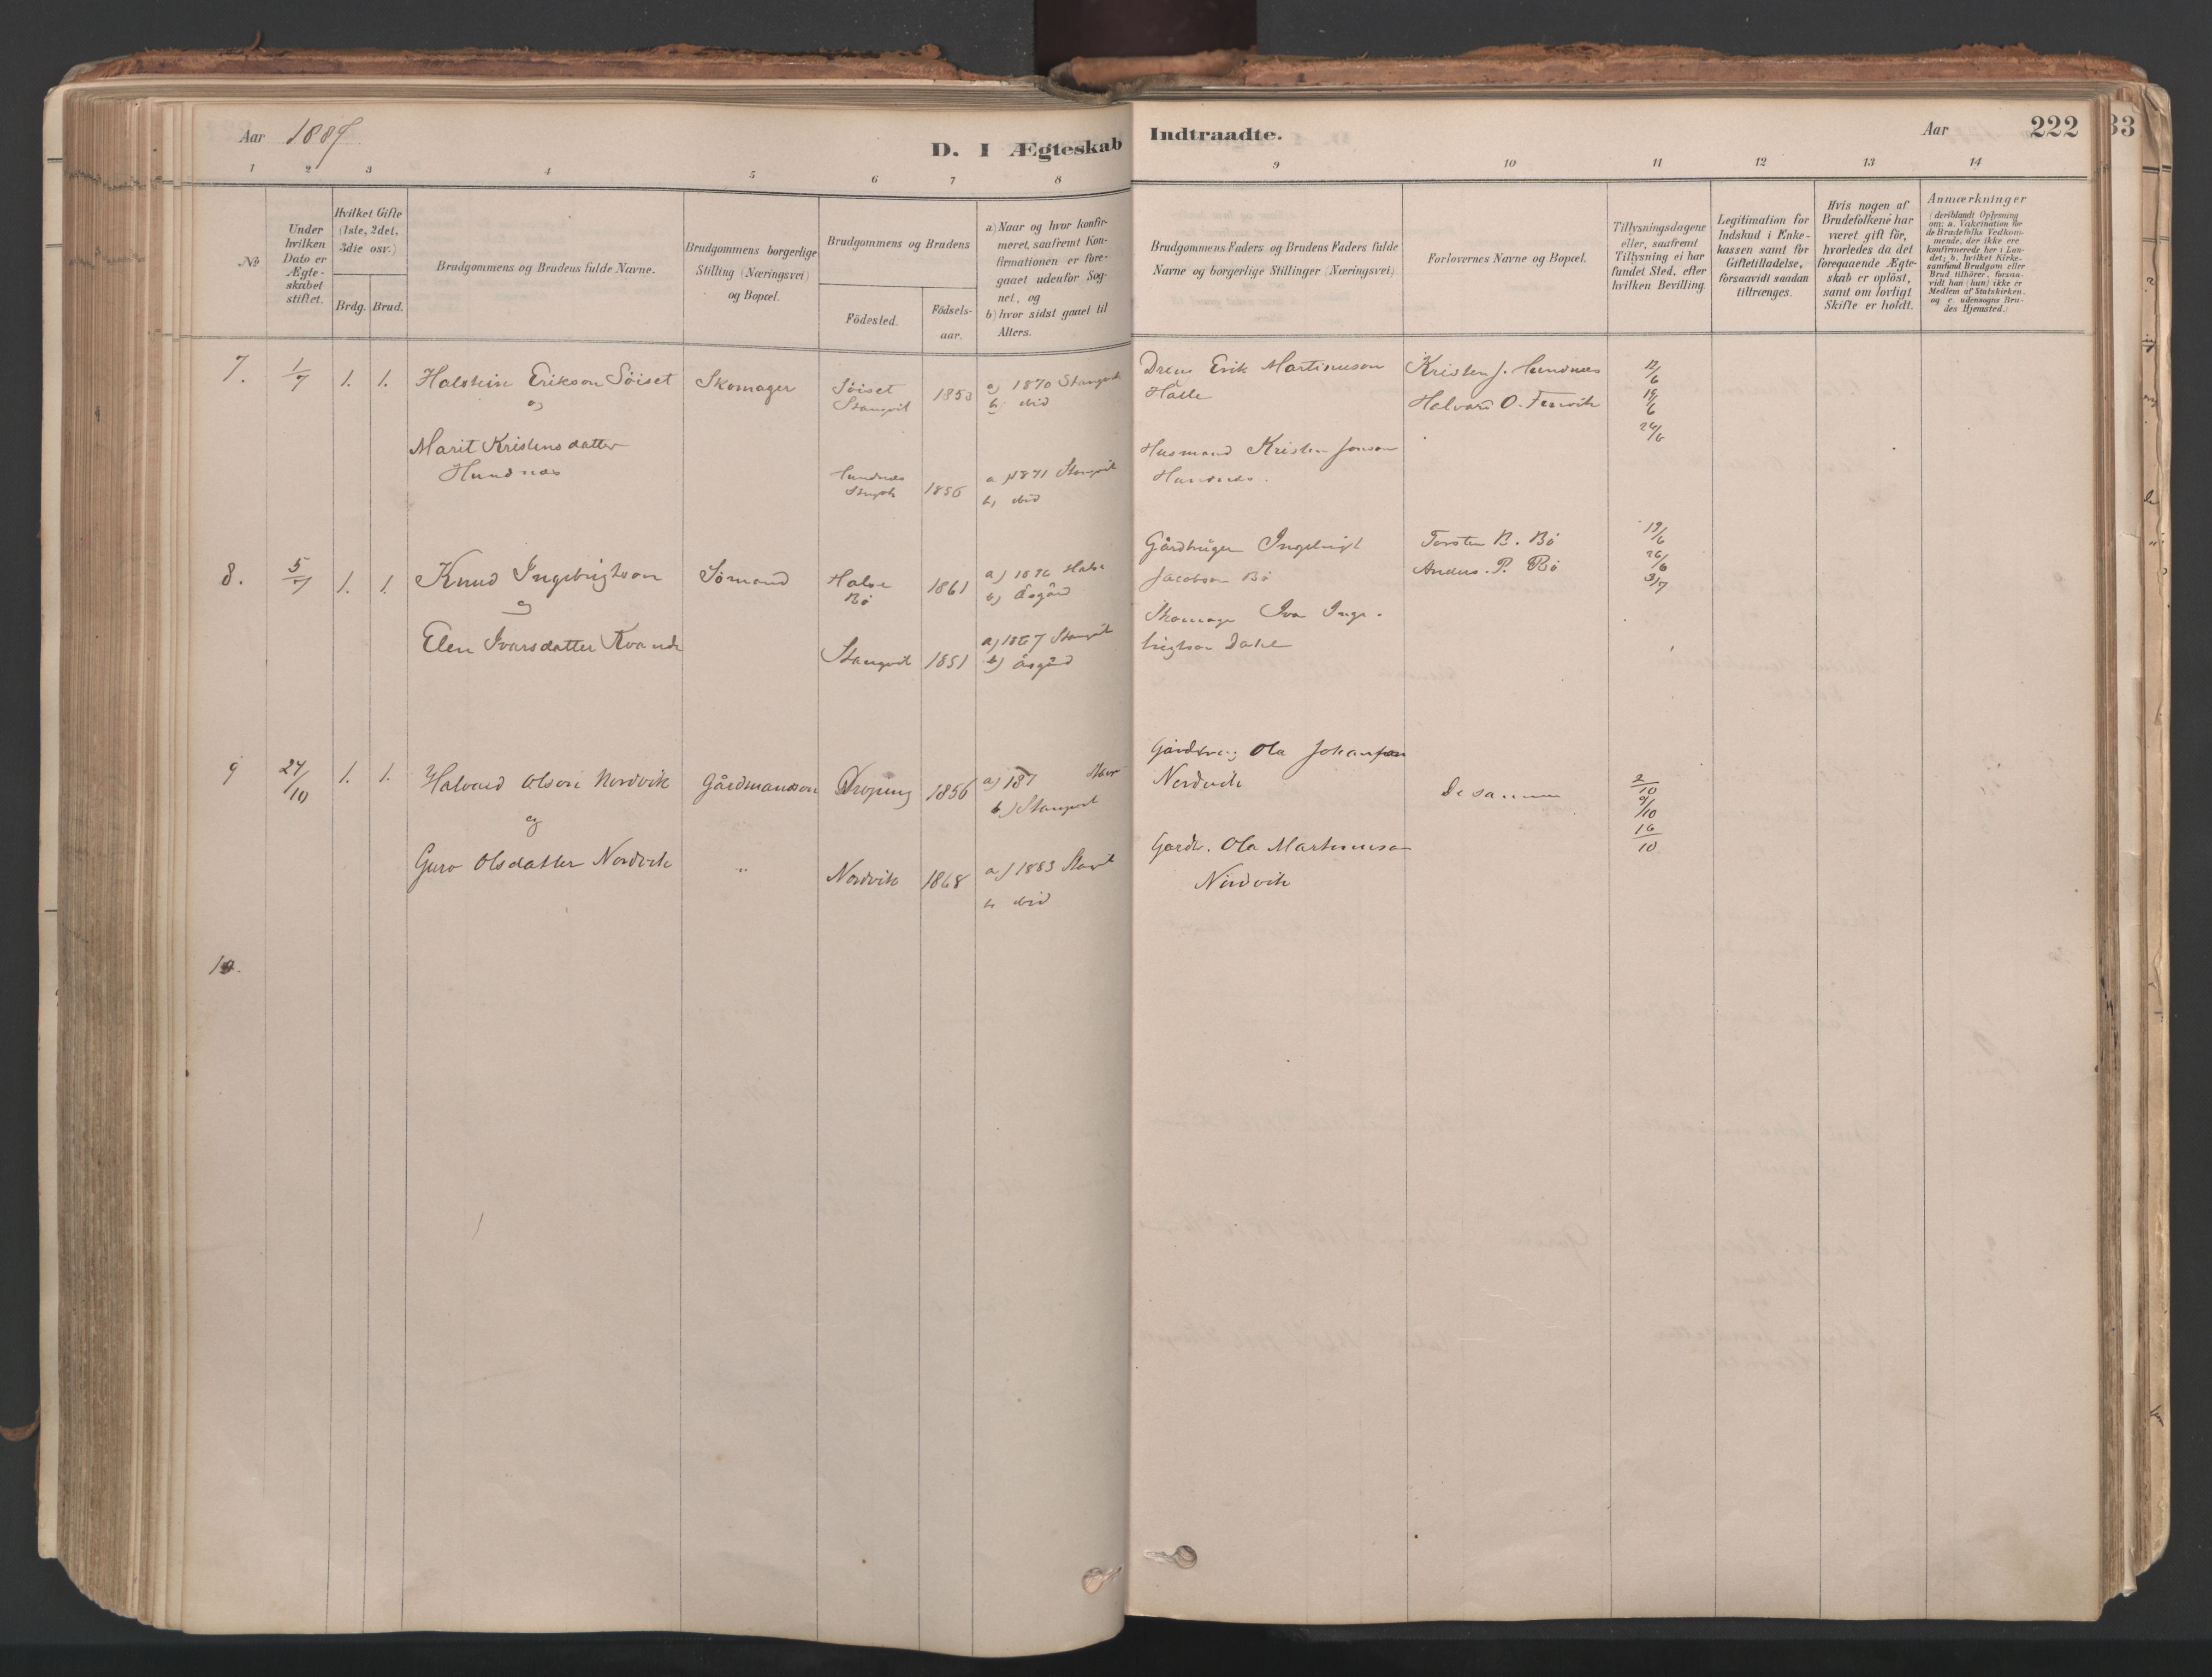 Aar 1887.
D. I Ægteskab Indtraadte.
Aar
222
33
1 2 3 4 5 6 7 8 9 10 11 12 13 14
No
Under hvilken Dato er Ægte-skabet stiftet.
Hvilket Gifte (1ste, 2det, 3die osv.)
Brdg. Brud.
Brudgommens og Brudens fulde Navne.
Brudgommens borgerlige Stilling (Næringsvei) og Bopæl.
Brudgommens og Brudens
Födested.
Födsels-aar.
a) Naar og hvor konfir-
meret, saafremt Kon-
firmationen er fore-
gaaet udenfor Sog-
net, og
b) hvor sidst gaaet til
Alters.
Brudgommens Faders og Brudens Faders fulde
Navne og borgerlige Stillinger (Næringsvei)
Forlovernes Navne og Bopæl.
Tillysningsdagene
eller, saafremt
Tillysning ei har
fundet Sted, efter
hvilken Bevilling.
Legitimation for
Indskud i Enke-
kassen samt for
Giftetilladelse,
forsaavidt saadan
tiltrænges.
Hvis nogen af
Brudefolkene har
været gift för,
hvorledes da det
foregaaende Ægte-
skab er oplöst,
samt om lovligt
Skifte er holdt.
Anmærkninger
(deriblandt Oplysning
om: a. Vakcination for
de Brudefolks Vedkom-
mende, der ikke ere
konfirmerede her i Lan-
det; b. hvilket Kirke-
samfund Brudgom eller
Brud tilhörer, forsaa-
vidt han (hun) ikke er
Medlem af Statskirken,
og c. udensogns Bru-
des Hjemsted.)
7. 1/7 1. 1. Halstein Erikson Söiset
og
Marit Kristensdatter
Hundnes
Skomager
Söiset
Stangvik
1853
a) 1870 Stangvik
b) ibid
Hundnes
Stangvik
1856
a) 1871 Stangvik
b) ibid
Dreng Erik Martinuson
Halle
Husmand Kristen Jonson
Hundnes.
Kristen J. Hundnes
Halvard O.
12/6
19/6
26/6
8. 5/7 1. 1. Knud Ingebrigtson
og
Elen Ivarsdatter Kvande
Sömand
Halse
Bö
1861
a) 1876 Halse
b) Åsgård
Stangvik 1851
a) 1867 Stangvik
b) Åsgård
Gårdbruger Ingebrigt
Jacobson Bö
Skomager Ivar Inge-
brigtson Dahl
Torsten B. Bö
Anders. P. Bö
19/6
26/6
3/7
9 24/10 1. 1. Halvard Olson Nordvik
og
Guro Olsdatter Nordvik
Gårdmandsön
"
1856
a) 187
b) Stangvik
Nordvik 1868
a) 1883 Stangvik
b ibid
Gårdbrug Ola Johanson
Nordvik
Gardb. Ola Martinuson
Nordvik
De samme
2/10
9/10
16/10
10.